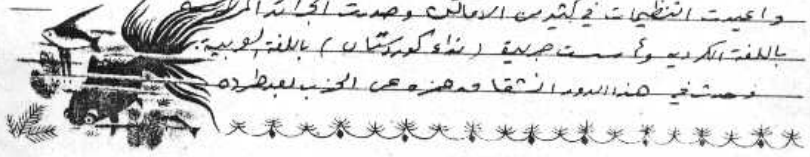 واعيدت التنظيمات في كثير من الاماكن وصدرت الجرائد
باللغة الكردية وأسست جريدة (نداء كوردستان) باللغة العربية.
وحدث في هذا الدور انشقاق عن الحزب